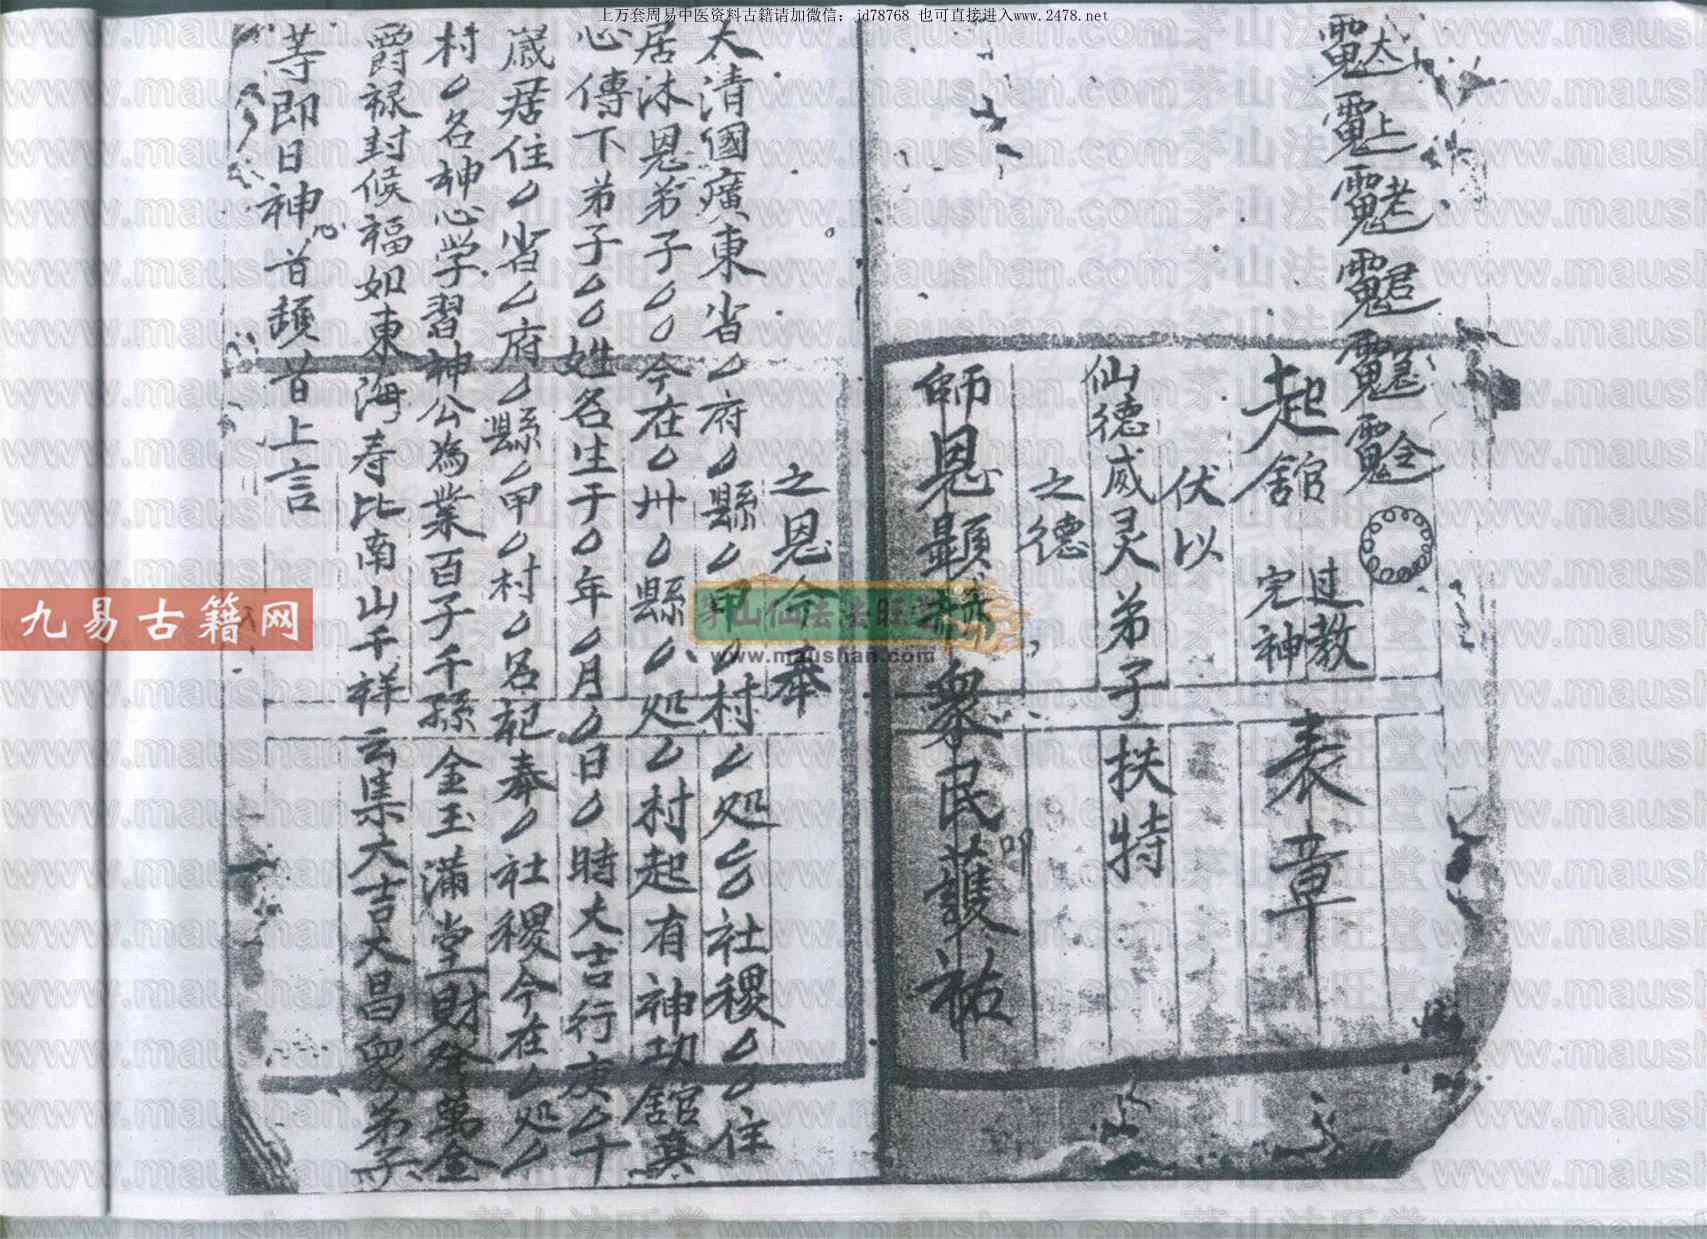 上万套周易中医资料古籍请加微信: jd78768 也可直接进入www.2478.net
起舘 过教 完神 表章
伏以
仙德威灵弟子扶持
之德
師恩顯赫衆民護祐
之恩今奉
大清國廣東省厶府厶縣厶甲厶村厶処厶社稷厶厶住
居沐恩弟子厶厶今在厶州厶縣厶処厶村起有神功舘真
心傳下弟子厶厶姓名生于厶年厶月厶日厶時大吉行庚厶十
歲居住厶省厶府厶縣厶甲厶村厶名祀奉厶社稷今在厶処厶
村厶名神心学習神公為業百子千孫金玉滿堂財發萬金
爵禄封候福如東海寿比南山千祥云集大吉大昌衆弟子
等即日神心首頓首上言
九易古籍网
茅山仙法法旺堂
www.maushan.com